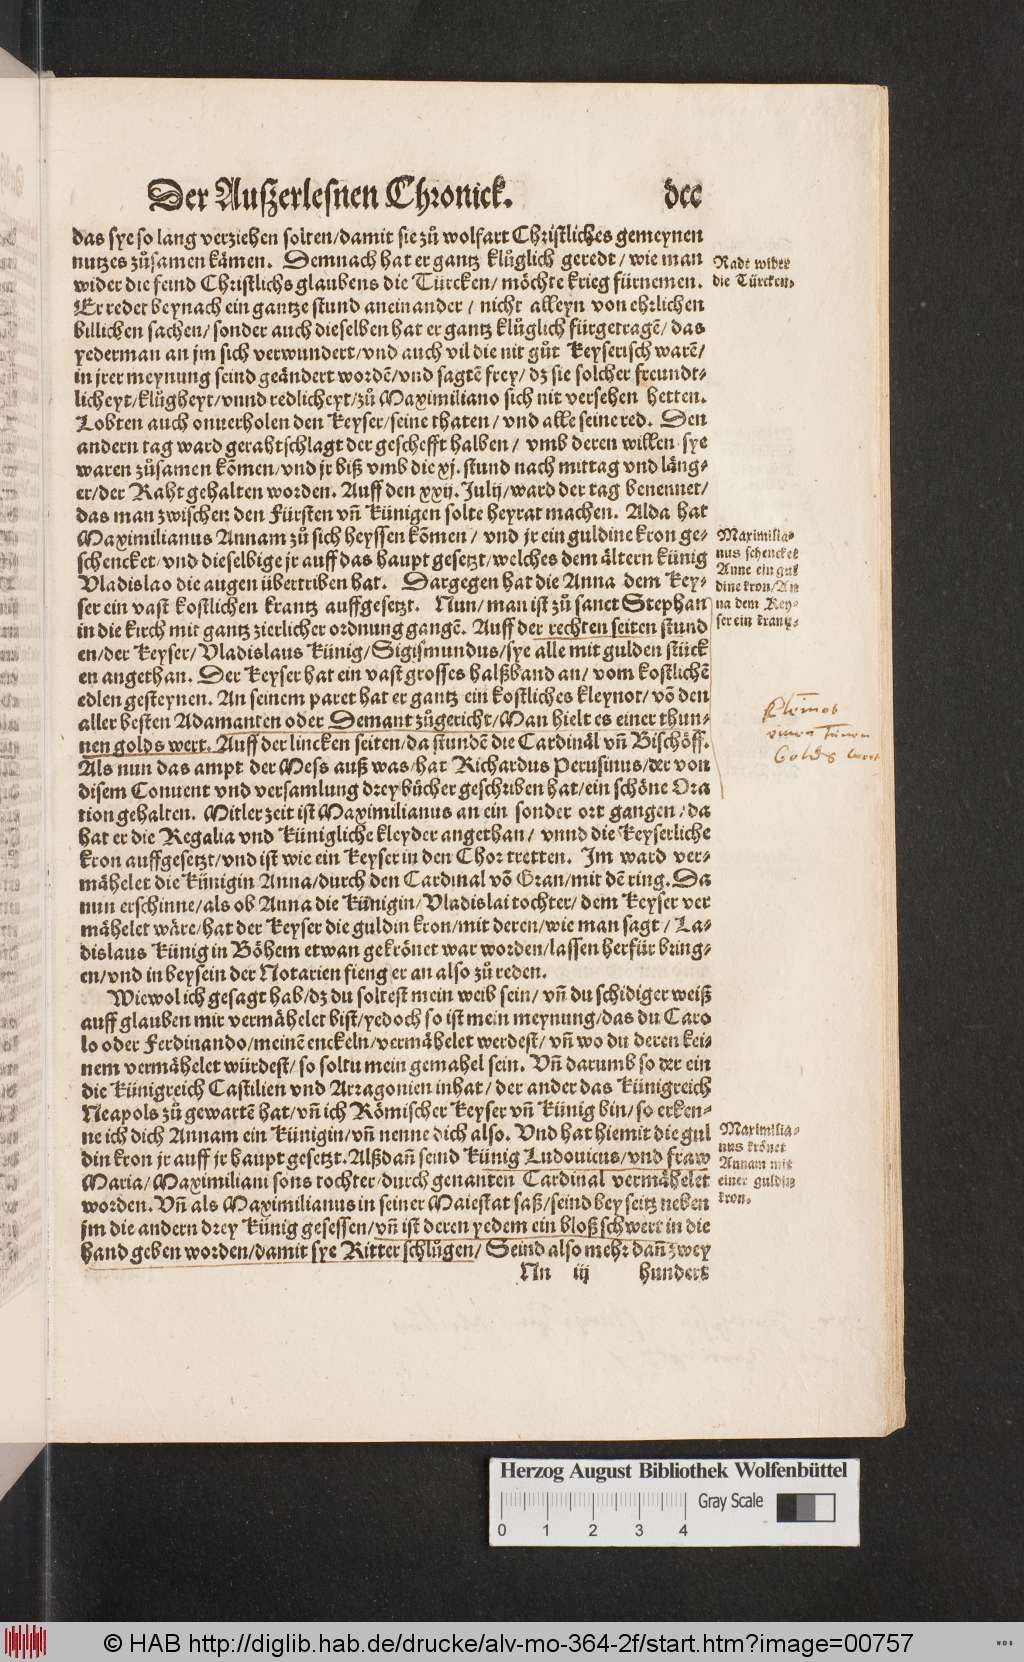 Der Auſzerleſnen Chronick. dcc
das sye so lang verziehen solten/damit sie zů wolfart Christliches gemeynen
nutzes zůsamen kämen. Demnach hat er gantz klůglich geredt/ wie man
wider die feind Christlichs glaubens die Türcken/ möchte krieg fürnemen.
Er redet beynach ein gantze stund aneinander/ nicht alleyn von ehrlichen
billichen sachen/ sonder auch dieselben hat er gantz klůglich fürgetragẽ/ das
yederman an jm sich verwundert/vnd auch vil die nit gůt Keyserisch warẽ/
in jrer meynung seind geändert wordẽ/vnd sagtẽ frey/ dz sie solcher freundt-
licheyt/klůgheyt/vnnd redlicheyt/zů Maximiliano sich nit versehen hetten.
Lobten auch onuerholen den Keyser/seine thaten/ vnd alle seine red. Den
andern tag ward gerahtschlagt der geschefft halben/ vmb deren willen sye
waren zůsamen kõmen/vnd jr biß vmb die xj. stund nach mittag vnd läng-
er/der Raht gehalten worden. Auff den xxij. Julij/ward der tag benennet/
das man zwischen den Fürsten vñ Künigen solte heyrat machen. Alda hat
Maximilianus Annam zů sich heyssen kõmen/ vnd jr ein guldine kron ge-
schencket/vnd dieselbige jr auff das haupt gesetzt/welches dem ältern künig
Vladislao die augen übertriben hat. Dargegen hat die Anna dem Key-
ser ein vast kostlichen krantz auffgesetzt. Nun/ man ist zů sanct Stephan
in die kirch mit gantz zierlicher ordnung gangẽ. Auff der rechten seiten stund
en/der Keyser/Vladislaus Künig/Sigismundus/sye alle mit gulden stück
en angethan. Der Keyser hat ein vast grosses halßband an/ vom kostlichẽ
edlen gesteynen. An seinem paret hat er gantz ein kostliches kleynot/ võ den
aller besten Adamanten oder Demant zůgericht/Man hielt es einer thun-
nen golds wert. Auff der lincken seiten/da stundẽ die Cardinäl vñ Bischöff.
Als nun das ampt der Mess auß was/hat Richardus Perusinus/der von
disem Conuent vnd versamlung drey bücher geschriben hat/ein schöne Ora
tion gehalten. Mitler zeit ist Maximilianus an ein sonder ort gangen/da
hat er die Regalia vnd Künigliche kleyder angethan/ vnnd die Keyserliche
kron auffgesetzt/vnd ist wie ein Keyser in den Chor tretten. Im ward ver-
mähelet die Künigin Anna/durch den Cardinal võ Gran/mit dẽ ring. Da
nun erschinne/als ob Anna die Künigin/Vladislai tochter/ dem Keyser ver
mähelet wäre/hat der Keyser die guldin kron/mit deren/wie man sagt/ La-
dislaus Künig in Böhem etwan gekrönet war worden/lassen herfür bring-
en/vnd in beysein der Notarien fieng er an also zů reden.
Wiewol ich gesagt hab/dz du soltest mein weib sein/ vñ du schidiger weiß
auff glauben mir vermähelet bist/yedoch so ist mein meynung/das du Caro
lo oder Ferdinando/meinẽ enckeln/vermähelet werdest/ vñ wo du deren kei-
nem vermähelet würdest/ so soltu mein gemahel sein. Vñ darumb so der ein
die Künigreich Castilien vnd Arragonien inhat/ der ander das Künigreich
Neapols zů gewartẽ hat/vñ ich Römischer Keyser vñ Künig bin/so erken-
ne ich dich Annam ein Künigin/vñ nenne dich also. Vnd hat hiemit die gul
din kron jr auff jr haupt gesetzt. Alßdañ seind Künig Ludouicus/vnd fraw
Maria/Maximiliani sons tochter/durch genanten Cardinal vermähelet
worden. Vñ als Maximilianus in seiner Maiestat saß/seind beyseitz neben
jm die andern drey Künig gesessen/vñ ist deren yedem ein bloß schwert in die
hand geben worden/damit sye Ritter schlůgen/ Seind also mehr dañ zwey
Nn iij hunders
Radt wider
die Türcken.
Maximilia-
nus schencket
Anne ein gul
dine kron/An
na dem Key-
ser ein krantz.
Goldes
Maximilia-
nus krönet
Annam mit
einer guldin
kron.
Herzog August Bibliothek Wolfenbüttel
Gray Scale
0 1 2 3 4
© HAB http://diglib.hab.de/drucke/alv-mo-364-2f/start.htm?image=00757